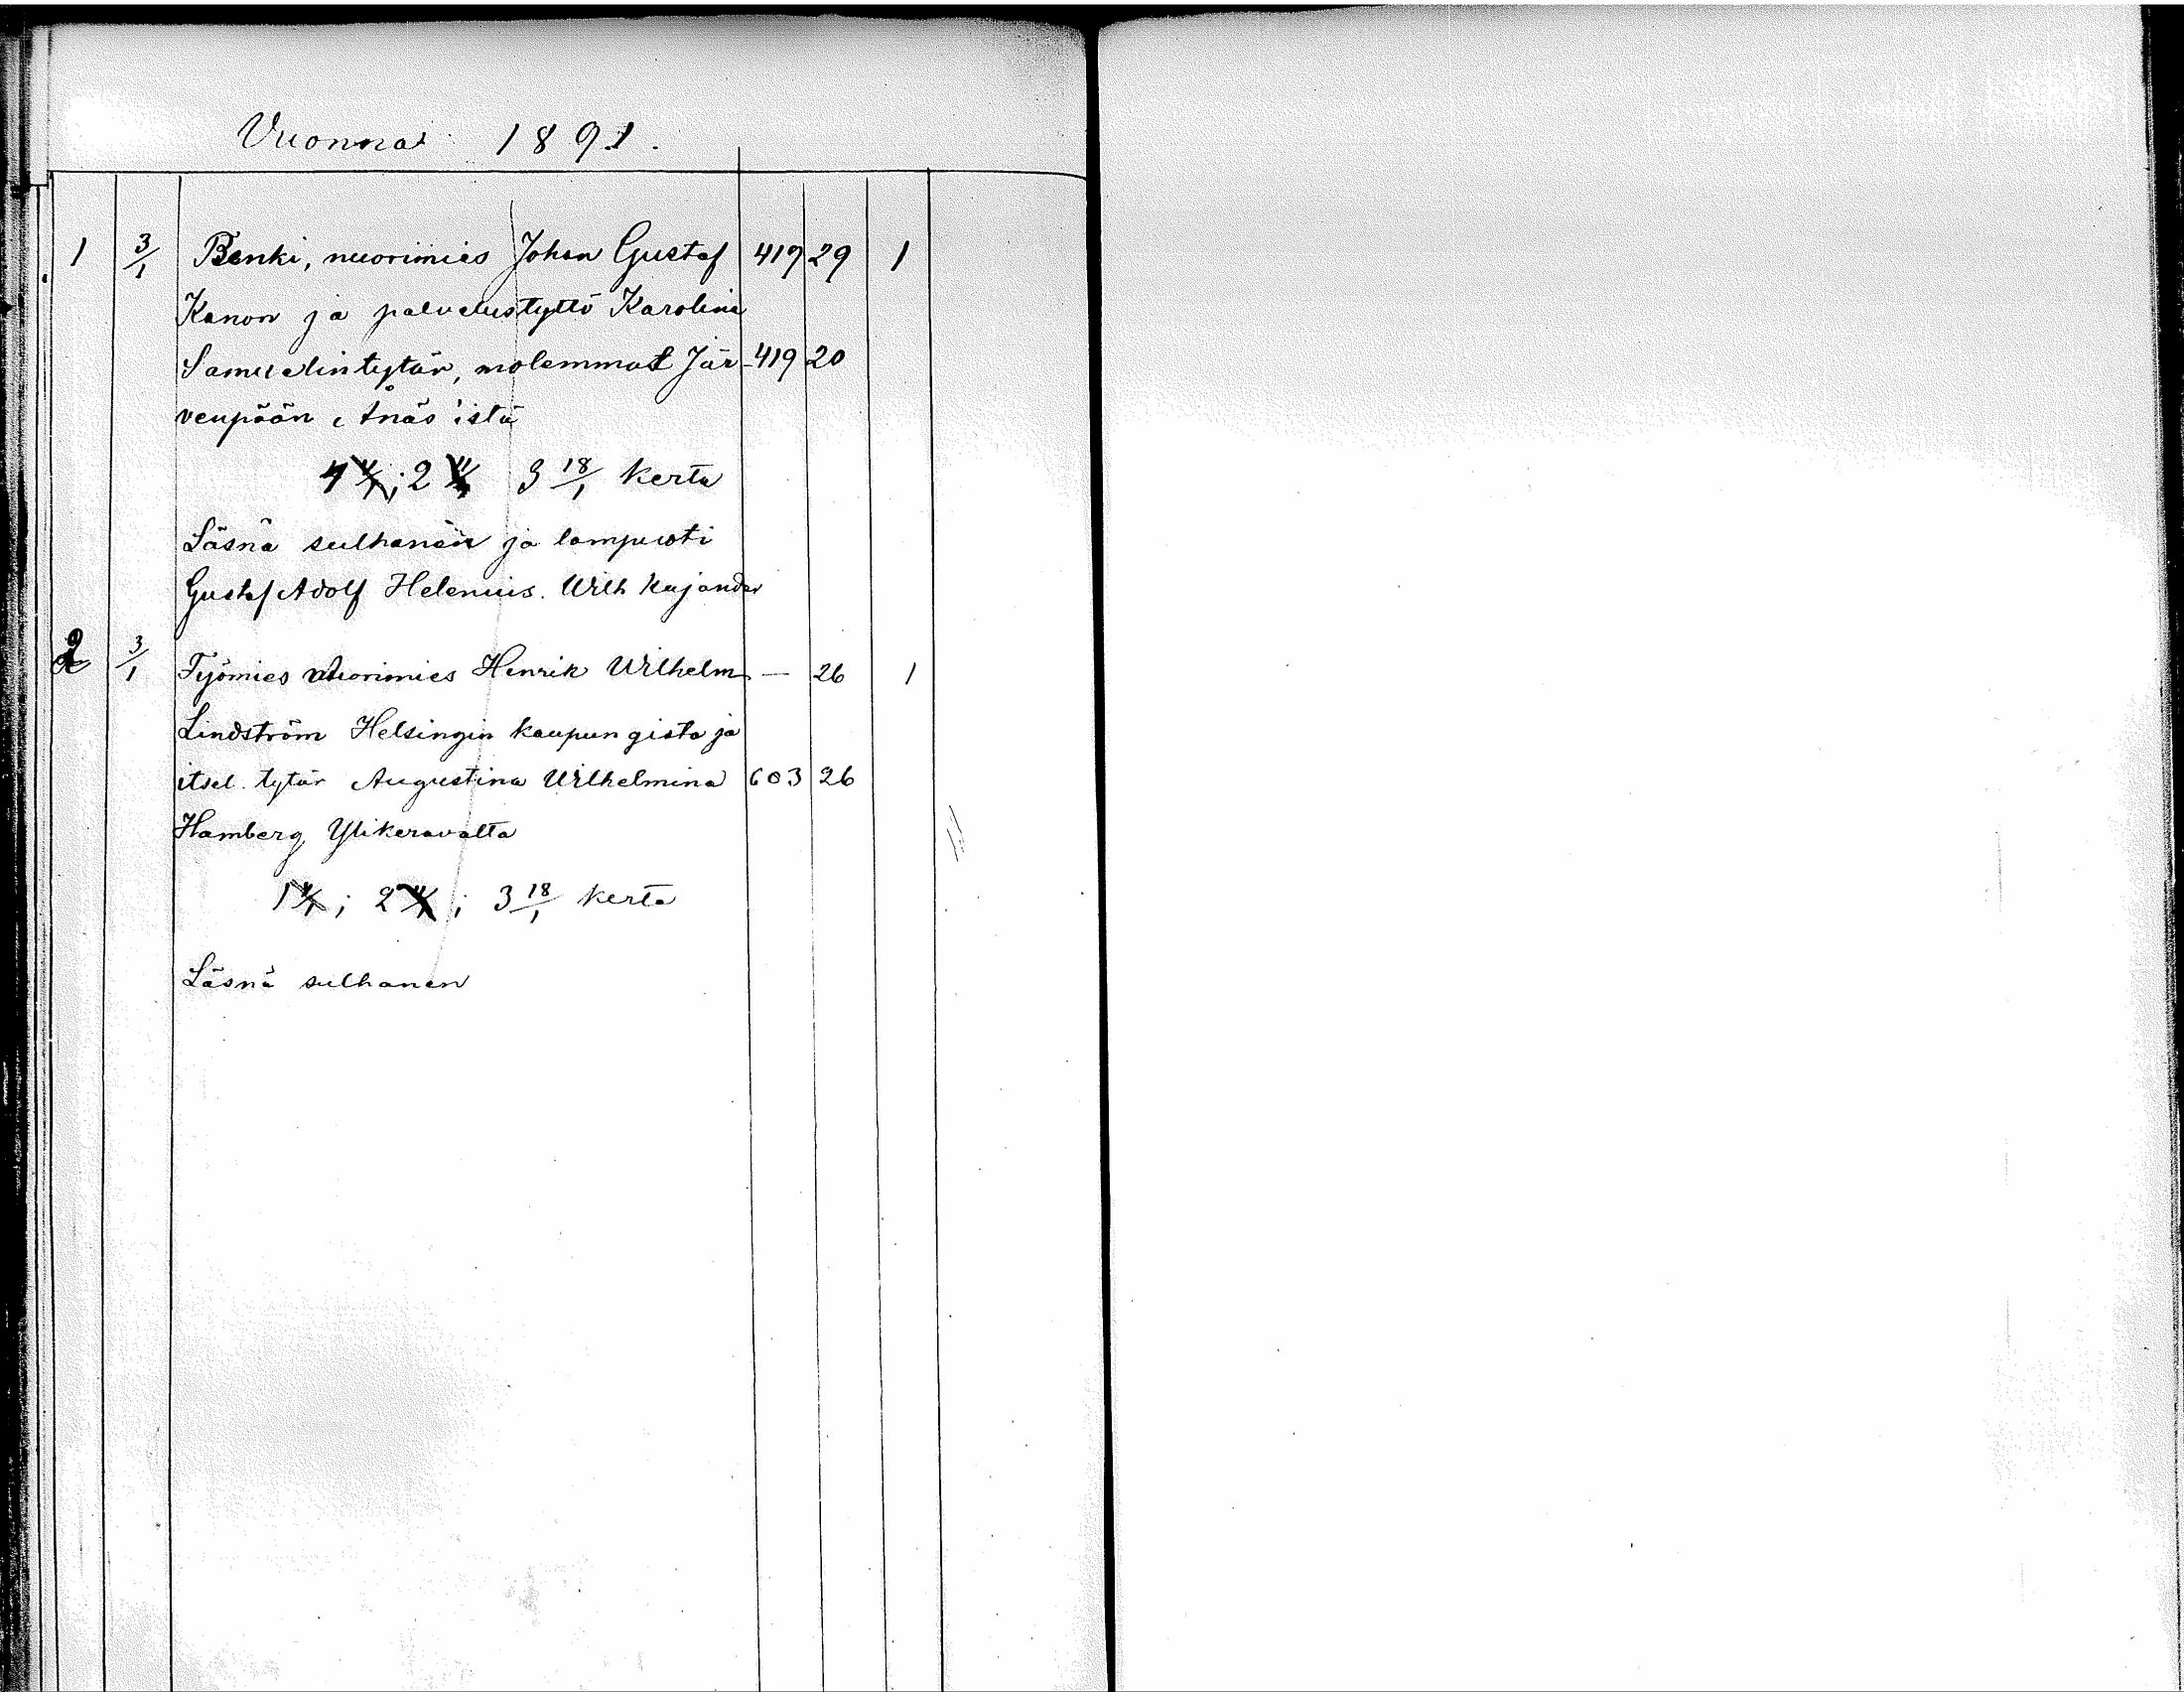 Vuonna 1891.
1 3/1 Renki, nuorimies Johan Gustaf 419 29 1
Kanon ja palvelustyttö Karolina
Samuelintytär, molemmat Jär- 419 20
venpään Ånäs'istä
1 4/1; 2 11/1 3 18/1 kerta
Läsnä sulhanen ja lampuoti
Gustaf Adolf Helenius. Wilh Kajander
2 3/1 Työmies nuorimies Henrik Wilhelm — 26 1
Lindström Helsingin kaupungista ja
itsel. tytär Augustina Wilhelmina 603 26
Hamberg Ylikeravalta
1 4/1; 2 11/1; 3 18/1 kerta
Läsnä sulhanen